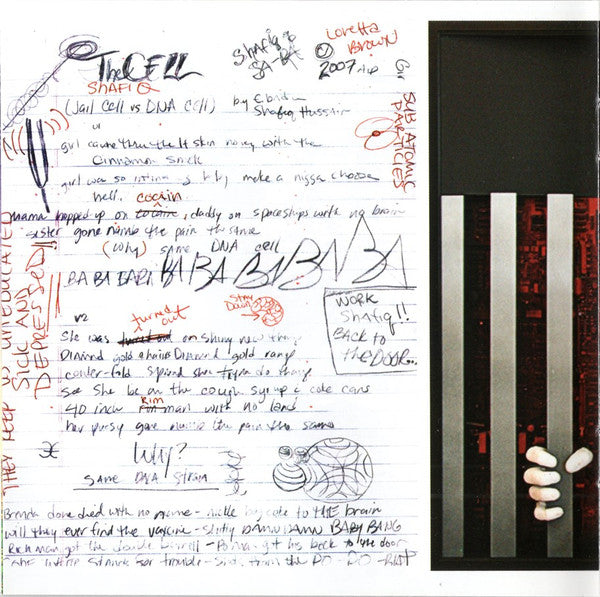 The CELL
SHAFIQ
Shafiq &
SA-RA
Loretta
Brown
2007
SUB ATOMIC
PARTICLES
(Jail Cell vs DNA Cell) by E badu
Shafiq Hussain
V1
girl came thru the skin honey with the
Cinnamon stick
girl was so make a nigga choose
hell.
cocain
mama hopped up on cocain, daddy on spaceships with no brain
sister gone numb the pain the same
(Why) same DNA cell
BA BA BA BA BA BA BA BA
THEY KEEP US UNEDUCATED
SICK AND
DEPRESSED!!
V2
turned out
Stay
Down
She was turned out on shiny new thang
Diamond gold chains Diamond gold rang
center-fold spread she tryna do thang
see She be on the cough syrup & coke cans
Rim
40 inch man with no land
her pussy gone numb the pain the same
Why?
SAME DNA STRAIN
WORK
Shafiq!!
BACK TO
the DOOR..
Brenda done died with no name - nickle bag coke to THE brain
will they ever find the vaccine - shitty DAMN DAMN BABY BANG
Rich man got the double barrell - Po man got his back to the door